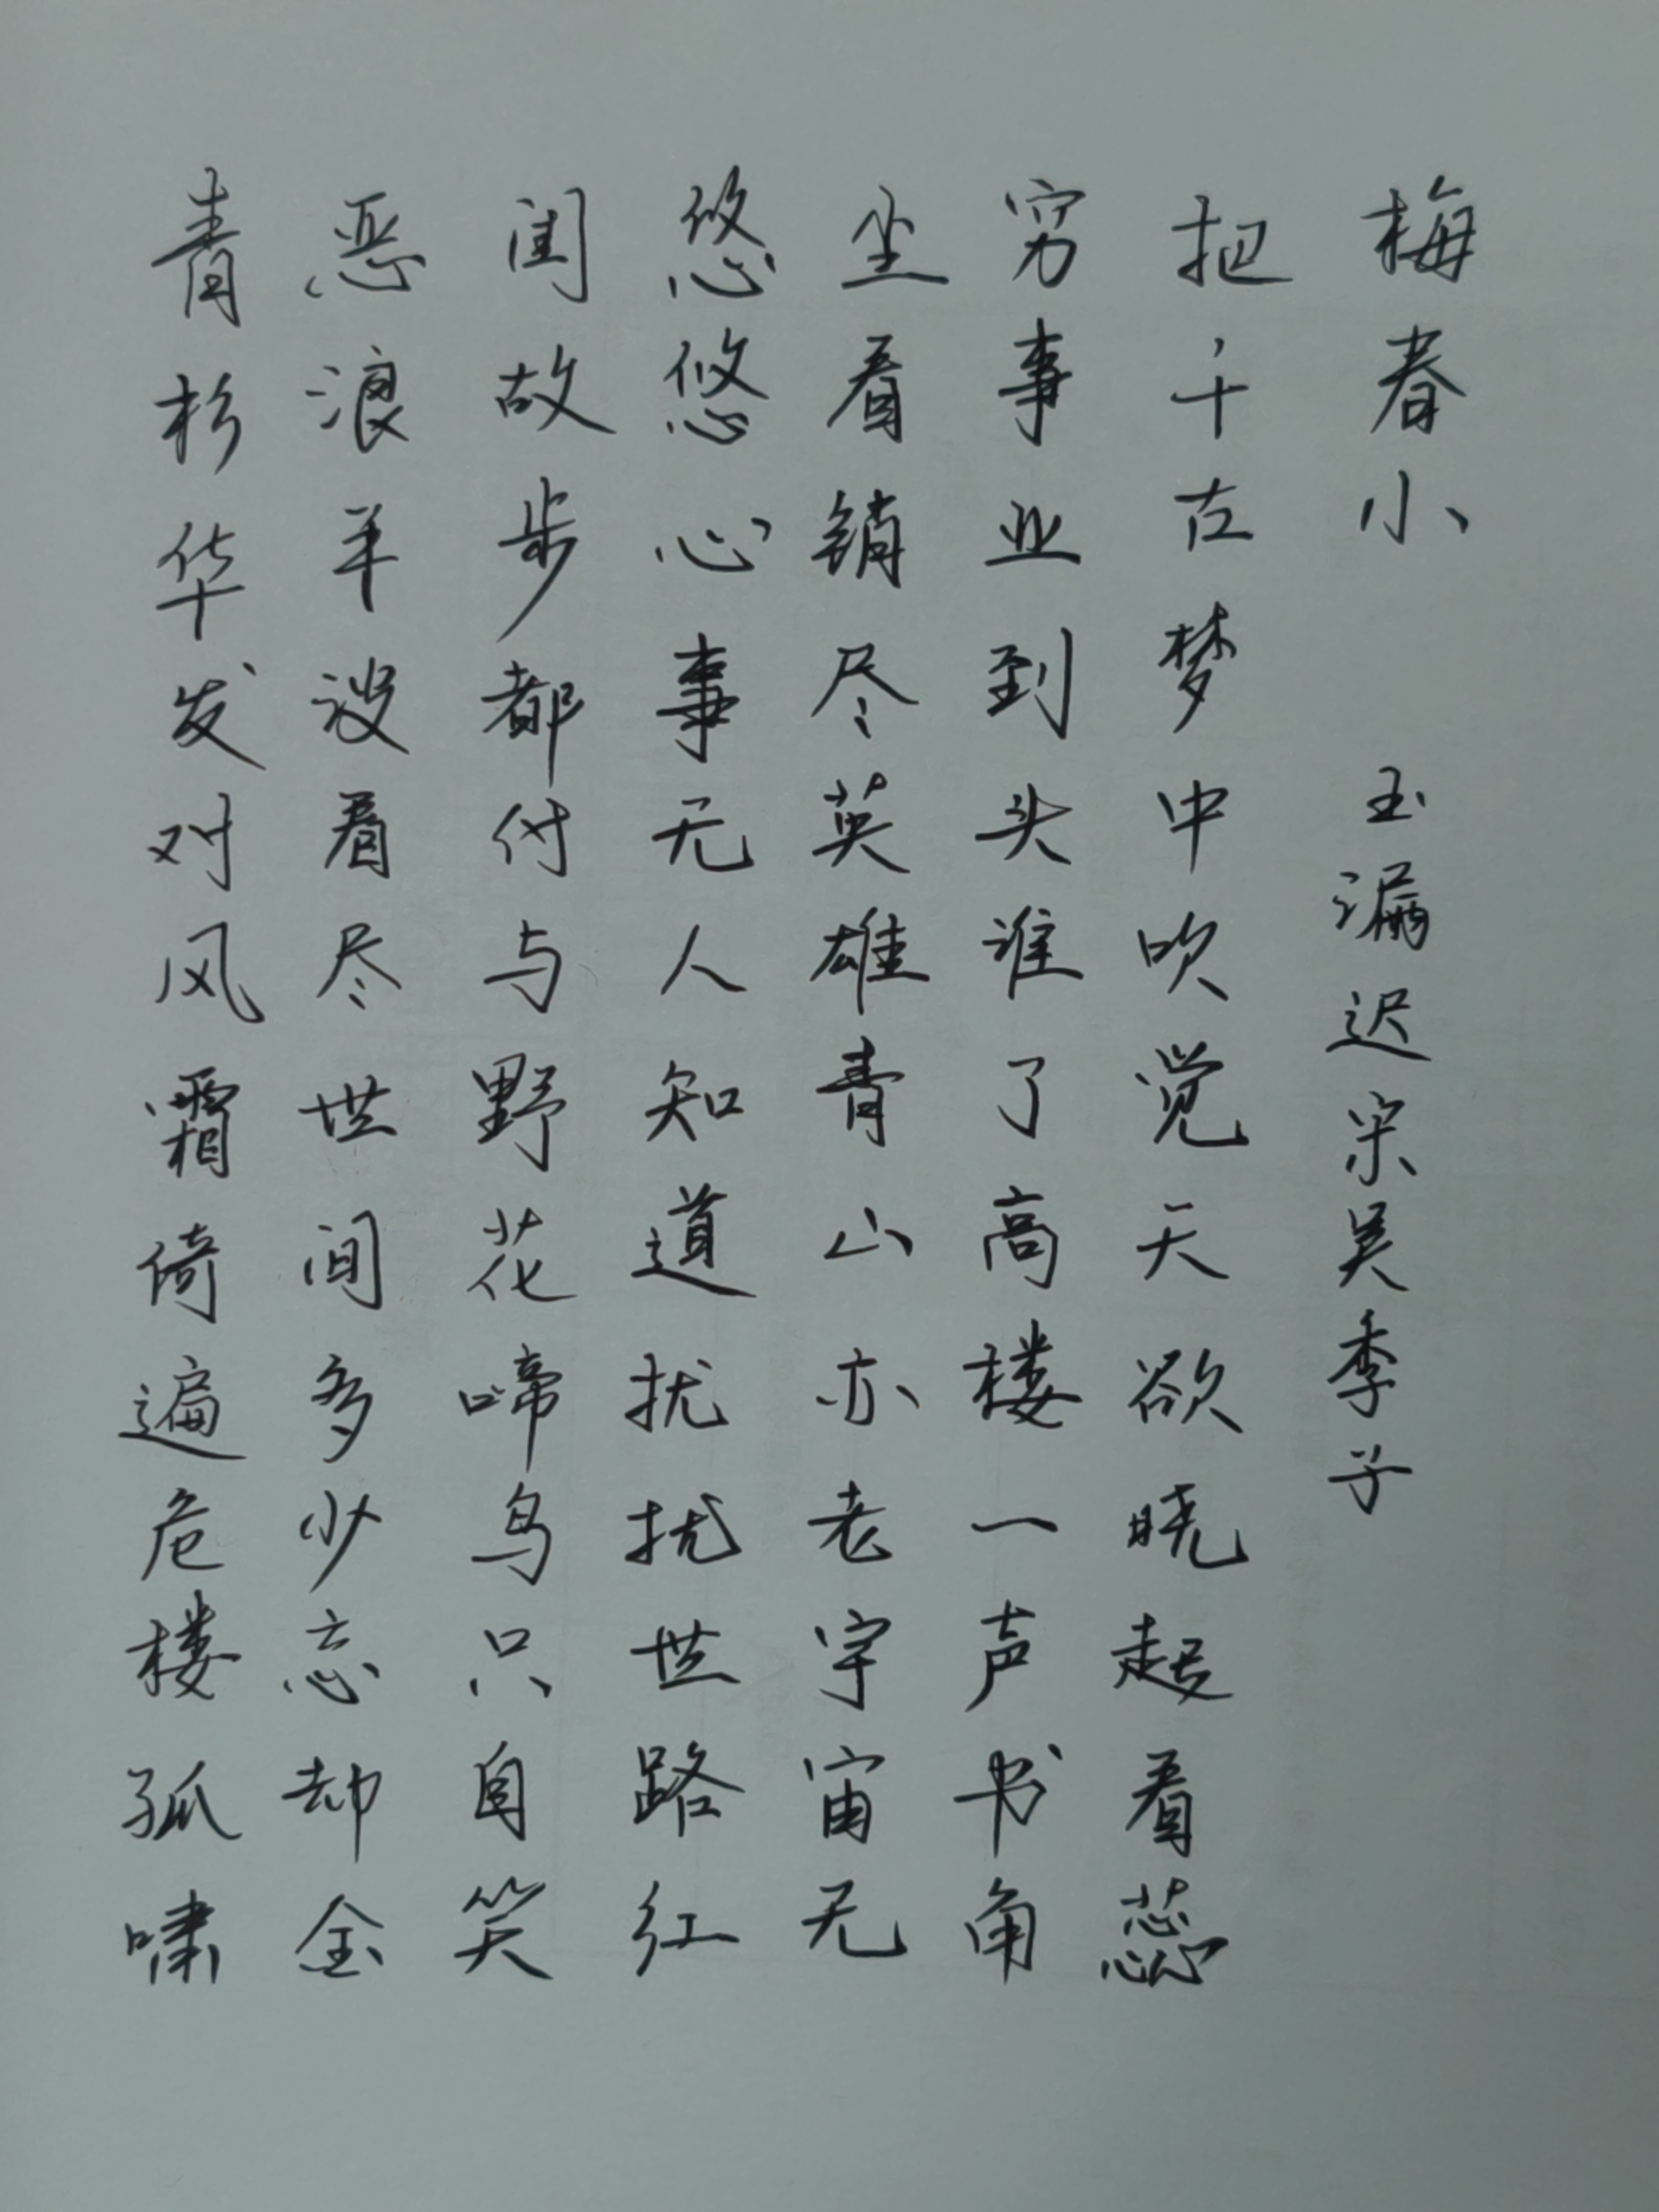 青杉华发对风霜倚遍危楼孤啸
恶浪平没看尽世间多少忘却金
闺故步都付与野花啼鸟只自笑
悠悠心事无人知道扰扰世路红
尘看销尽英雄青山亦老宇宙无
穷事业到头谁了高楼一声书角
把千古梦中吹觉天欲晓起看蕊
梅春小 玉漏迟宋吴季子